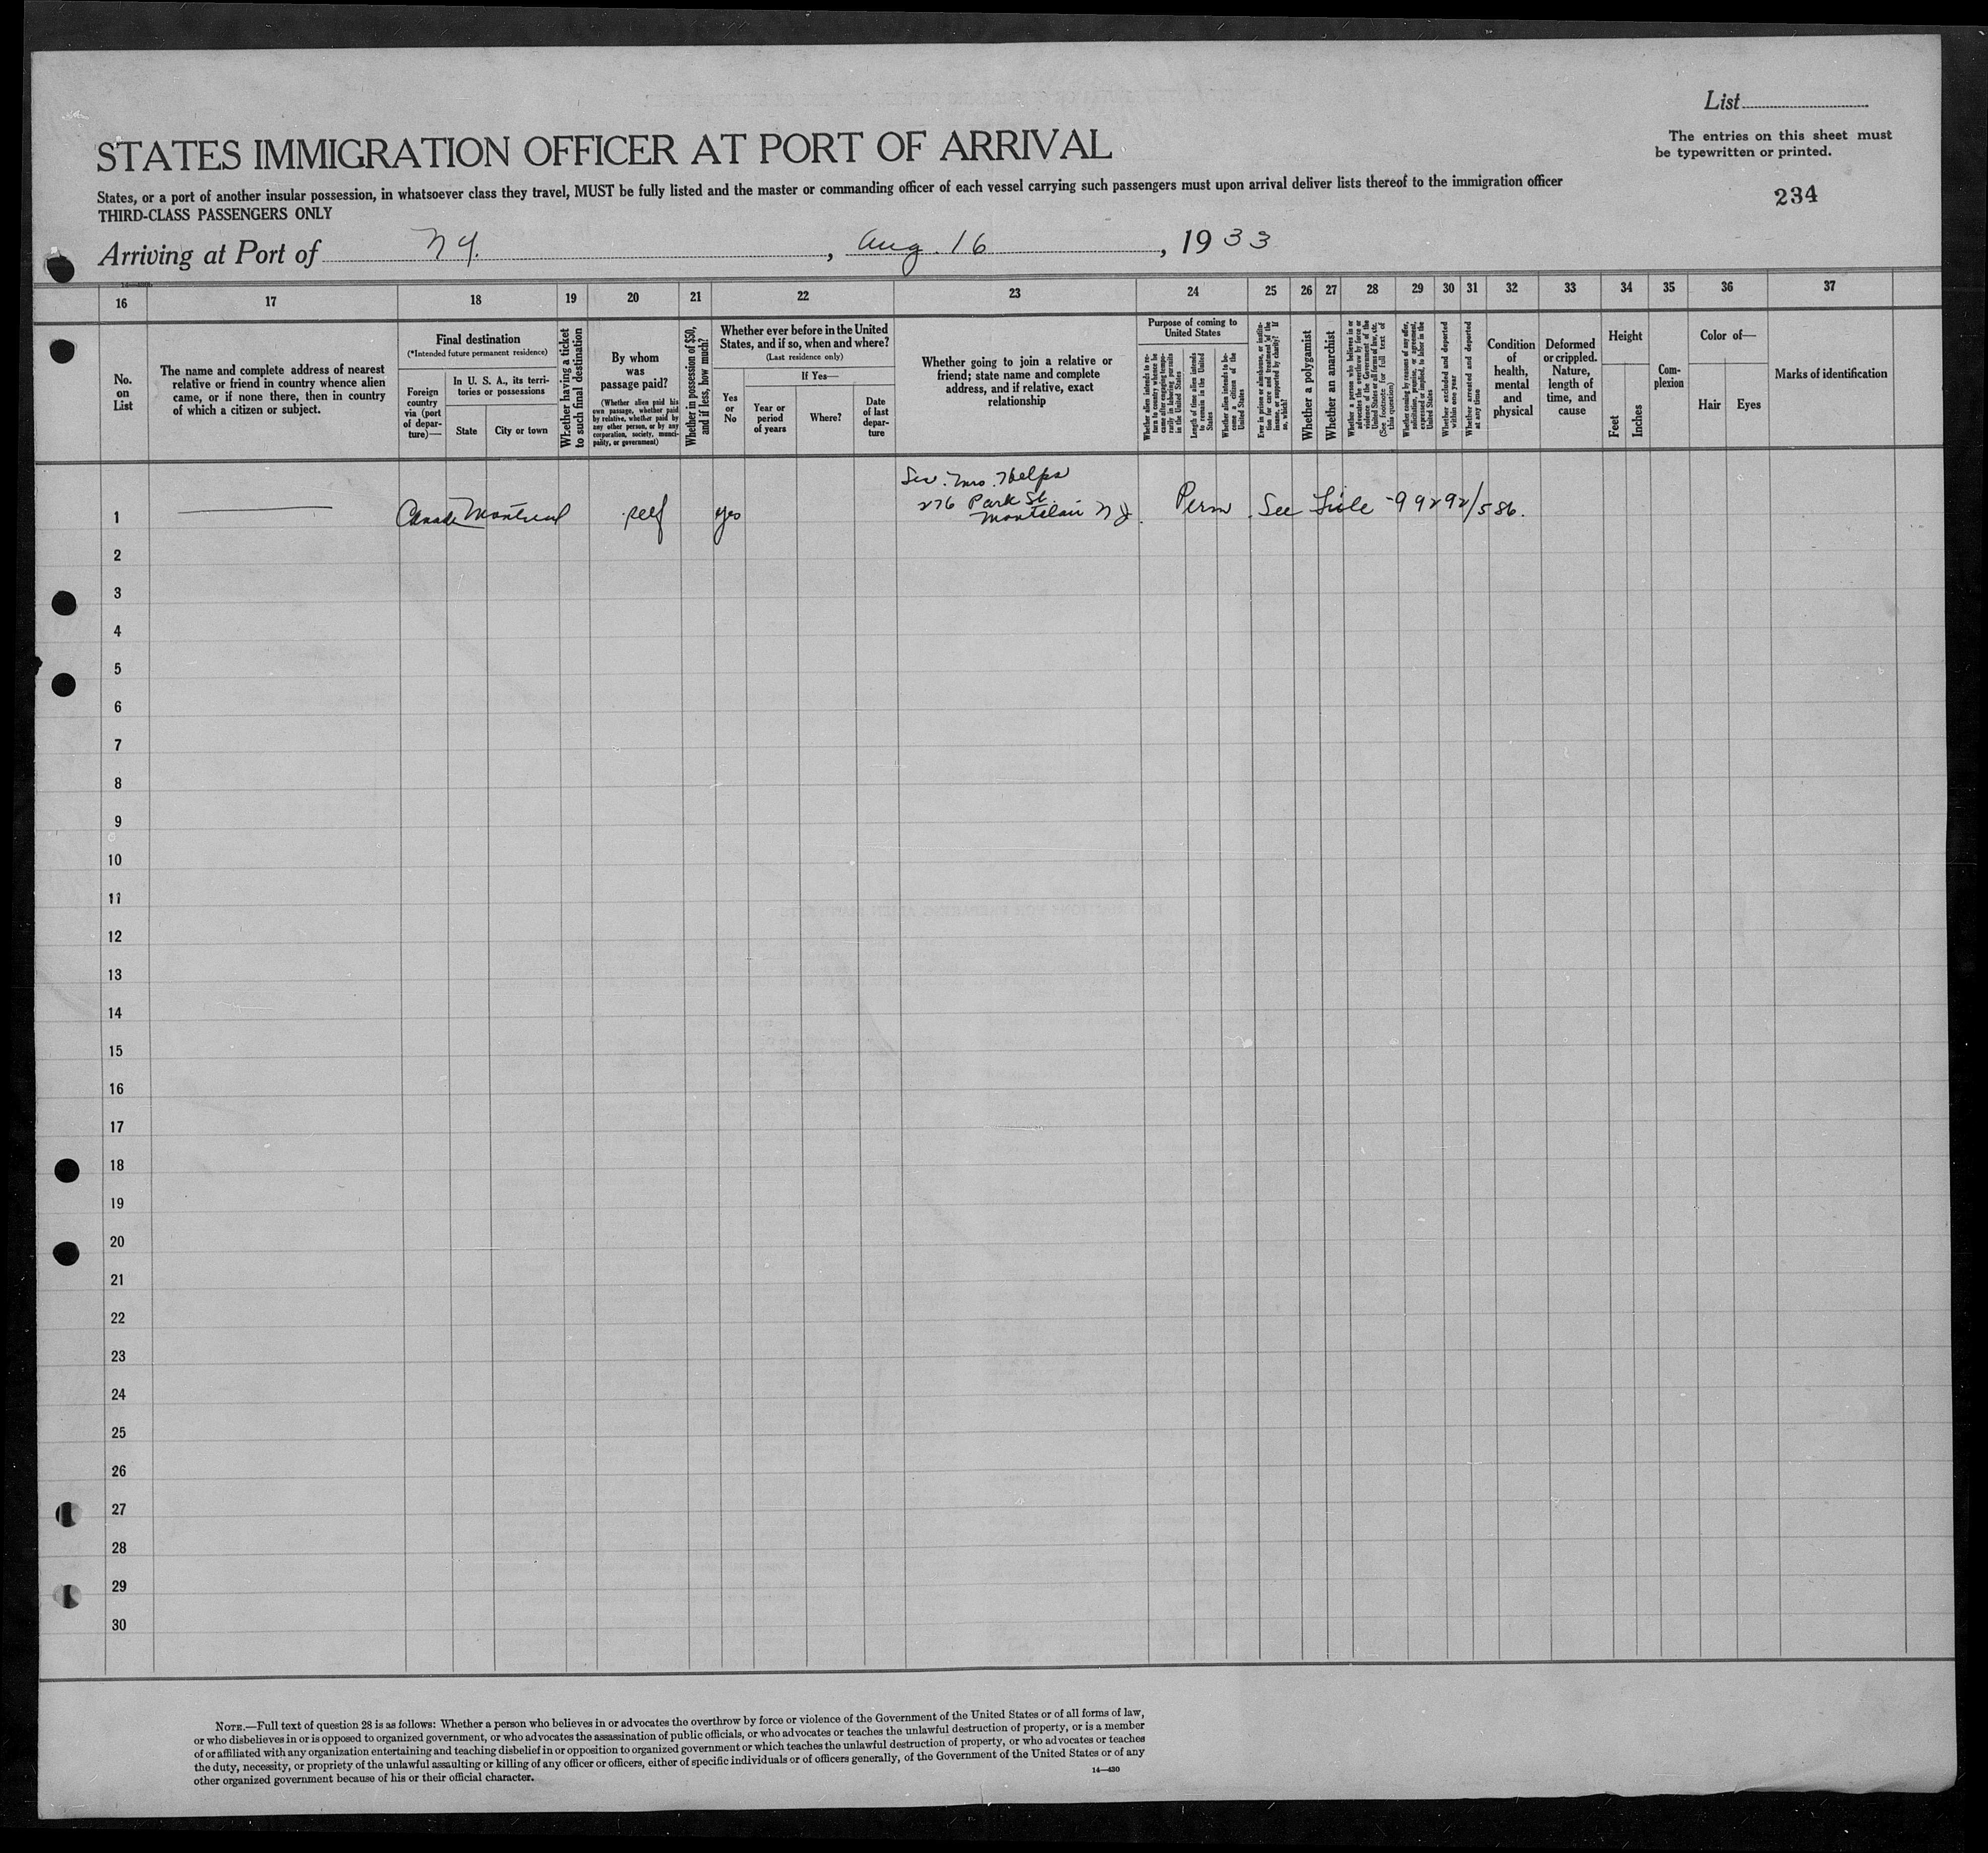 List
The entries on this sheet must
be typewritten or printed.
234
STATES IMMIGRATION OFFICER AT PORT OF ARRIVAL
States, or a port of another insular possession, in whatsoever class they travel, MUST be fully listed and the master or commanding officer of each vessel carrying such passengers must upon arrival deliver lists thereof to the immigration officer
THIRD-CLASS PASSENGERS ONLY
Arriving at Port of N Y. , Aug. 16 , 1933
16 17 18 19 20 21 22 23 24 25 26 27 28 29 30 31 32 33 34 35 36 37
No.
on
List
The name and complete address of nearest
relative or friend in country whence alien
came, or if none there, then in country
of which a citizen or subject.
Final destination
(*Intended future permanent residence)
Foreign
country
via (port
of depar-
ture)—
In U. S. A., its terri-
tories or possessions
State
City or town
Whether having a ticket
to such final destination
By whom
was
passage paid?
(Whether alien paid his
own passage, whether paid
by relative, whether paid by
any other person, or by any
corporation, society, munici-
pality, or government)
Whether in possession of $50,
and if less, how much?
Whether ever before in the United
States, and if so, when and where?
(Last residence only)
If Yes—
Yes
or
No
Year or
period
of years
Where?
Date
of last
depar-
ture
Whether going to join a relative or
friend; state name and complete
address, and if relative, exact
relationship
Purpose of coming to
United States
Whether alien intends to re-
turn to country whence he
came after engaging tempo-
rarily in laboring pursuits
in the United States
Length of time alien intends
to remain in the United
States
Whether alien intends to be-
come a citizen of the
United States
Ever in prison or almshouse, or institu-
tion for care and treatment of the
insane, or supported by charity? If
so, which?
Whether a polygamist
Whether an anarchist
Whether a person who believes in or
advocates the overthrow by force or
violence of the Government of the
United States or all forms of law, etc.
(See footnote for full text of
this question)
Whether coming by reasons of any offer,
solicitation, promise, or agreement,
expressed or implied, to labor in the
United States
Whether excluded and deported
within one year
Whether arrested and deported
at any time
Condition
of
health,
mental
and
physical
Deformed
or crippled.
Nature,
length of
time, and
cause
Height
Feet
Inches
Com-
plexion
Color of—
Hair
Eyes
Marks of identification
Mrs. Phelps
276 Park St.
1 Canada Montreal self yes Montclair N J. Perm See File - 99292/586.
2
3
4
5
6
7
8
9
10
11
12
13
14
15
16
17
18
19
20
21
22
23
24
25
26
27
28
29
30
NOTE.—Full text of question 28 is as follows: Whether a person who believes in or advocates the overthrow by force or violence of the Government of the United States or of all forms of law,
or who disbelieves in or is opposed to organized government, or who advocates the assassination of public officials, or who advocates or teaches the unlawful destruction of property, or is a member
of or affiliated with any organization entertaining and teaching disbelief in or opposition to organized government or which teaches the unlawful destruction of property, or who advocates or teaches
the duty, necessity, or propriety of the unlawful assaulting or killing of any officer or officers, either of specific individuals or of officers generally, of the Government of the United States or of any
other organized government because of his or their official character.
14—430